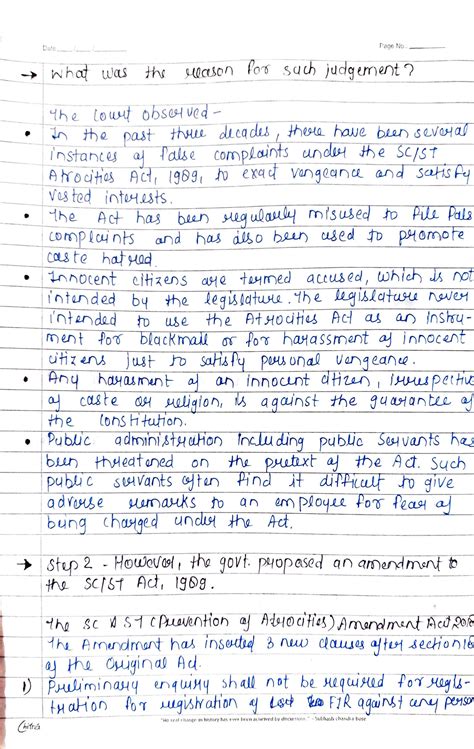 Date ___/___/___ Page No. ______
→ What was the reason for such judgement?
The Court observed -
• In the past three decades, there have been several
instances of false complaints under the SC/ST
Atrocities Act, 1989, to exact vengeance and satisfy
vested interests.
• The Act has been regularly misused to File Fals
complaints and has also been used to promote
caste hatred.
• Innocent citizens are termed accused, which is not
intended by the legislature. The legislature never
intended to use the Atrocities Act as an instru-
ment for blackmail or for harassment of innocent
citizens just to satisfy personal vengeance.
• Any harasment of an innocent citizen, irrespectiv
of caste or religion, is against the guarantee of
the Constitution.
• Public administration including public servants has
been threatened on the pretext of the Act. Such
public servants often find it difficult to give
adverse remarks to an employee for fear of
being charged under the Act.
→ Step 2 - However, the govt. proposed an amendment to
the SC/ST Act, 1989.
The SC & ST (Prevention of Atrocities) Amendment Act 2018
The Amendment has inserted 3 new clauses after section 18
of the Original Act.
1) Preliminary enquiry shall not be required for regis-
tration for registration of FIR against any person
Chitra
"No real change in history has ever been achieved by discussions." - Subhash chandra bose